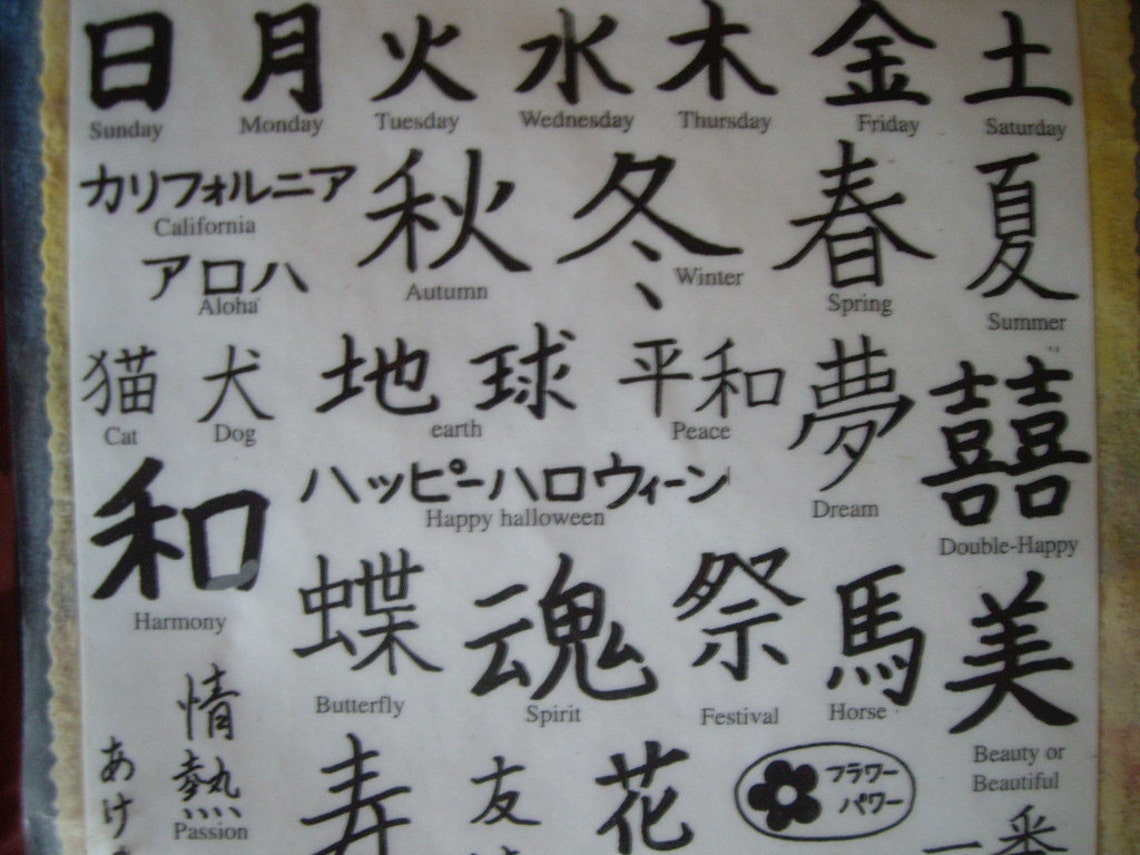 日 月 火 水 木 金 土
Sunday Monday Tuesday Wednesday Thursday Friday Saturday
カリフォルニア 秋 冬 春 夏
California
アロハ
Aloha Autumn Winter Spring Summer
猫 犬 地球 平和 夢 囍
Cat Dog earth Peace
ハッピーハロウィーン
Happy halloween
Dream
Double-Happy
和
Harmony
蝶 魂 祭 馬 美
Butterfly Spirit Festival Horse
Beauty or
Beautiful
情熱
Passion
あけ
寿 友 花
フラワー
パワー
一番